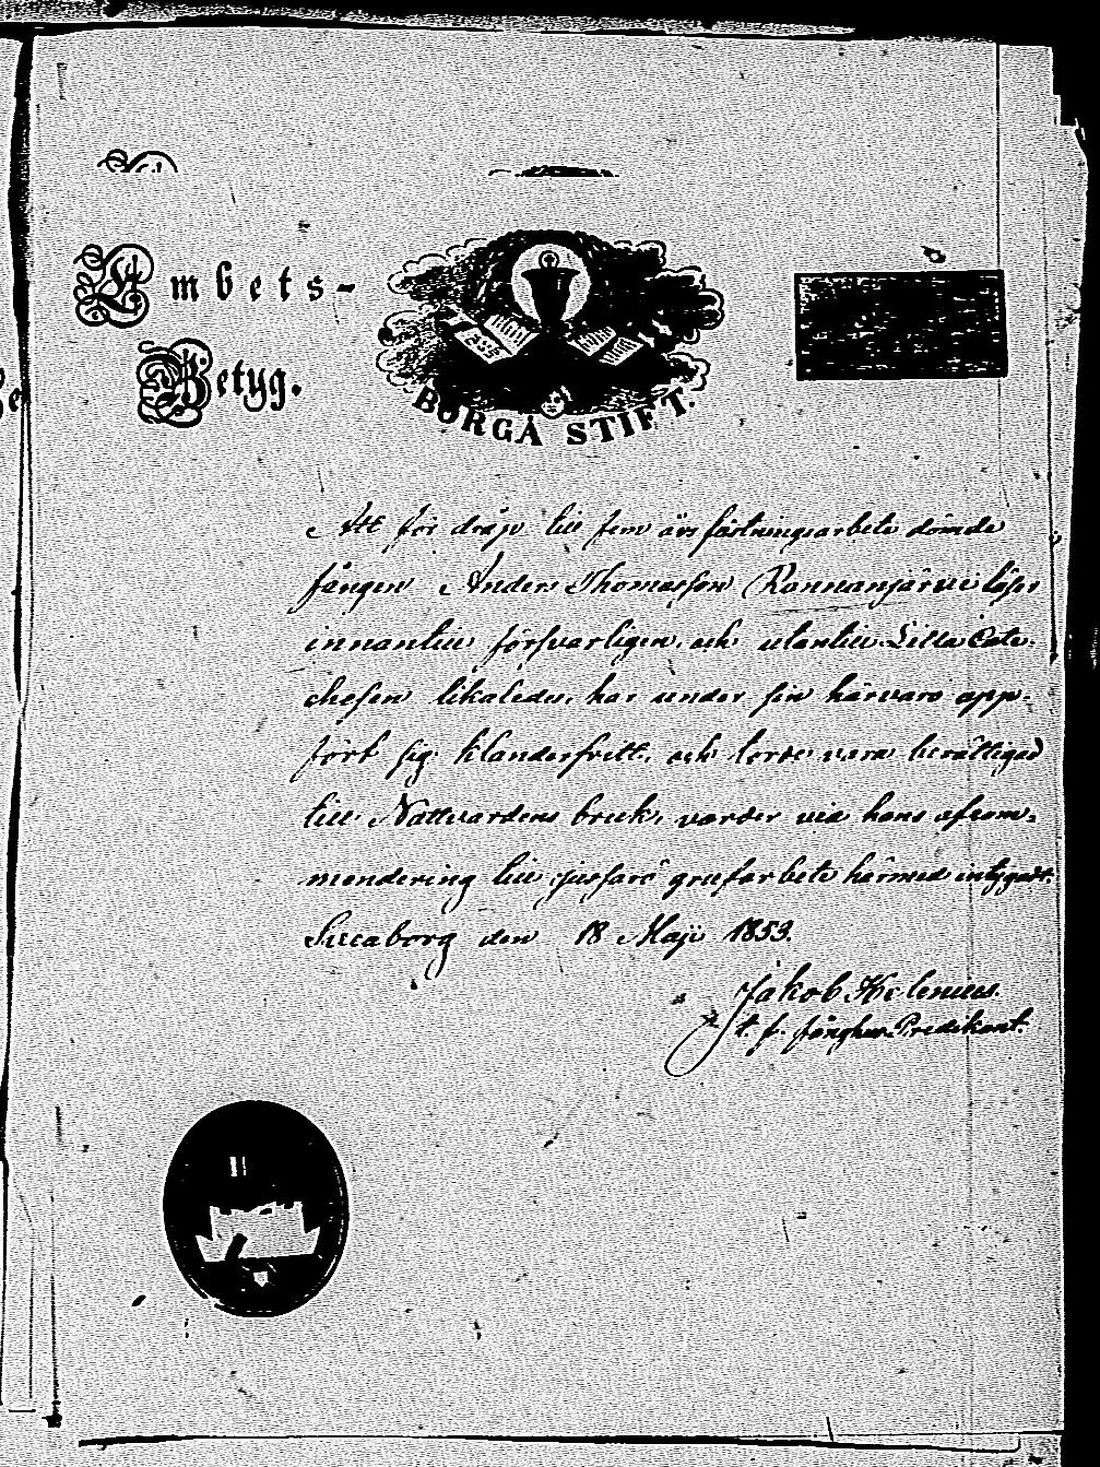 Embets-
Betyg.
BORGÅ STIFT.
Att för dråp till fem års fästningsarbete dömde
fången Anders Thomasson Rannanjärvi läser
innantill försvarligen, och utantill Lilla Cate-
chesen likaledes, har under sin härvaro upp-
fört sig klanderfritt, och torde vara berättigad
till Nattvardens bruk, varder vid hans afkom-
mendering till Jussarö grufarbete härmed intygadt.
Sveaborg den 18 Maji 1853.
Jakob Helenius.
t. f. fånghus Predikant.